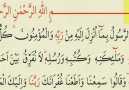 مِ اللَّهِ الرَّحْمَٰنِ الرَّ
الرَّسُولُ بِمَا أُنْزِلَ إِلَيْهِ مِنْ رَبِّهِ وَالْمُؤْمِنُونَ كُلٌّ
وَمَلَٰئِكَتِهِ وَكُتُبِهِ وَرُسُلِهِ لَا نُفَرِّقُ
وَقَالُوا سَمِعْنَا وَأَطَعْنَا غُفْرَانَكَ رَبَّنَا وَ